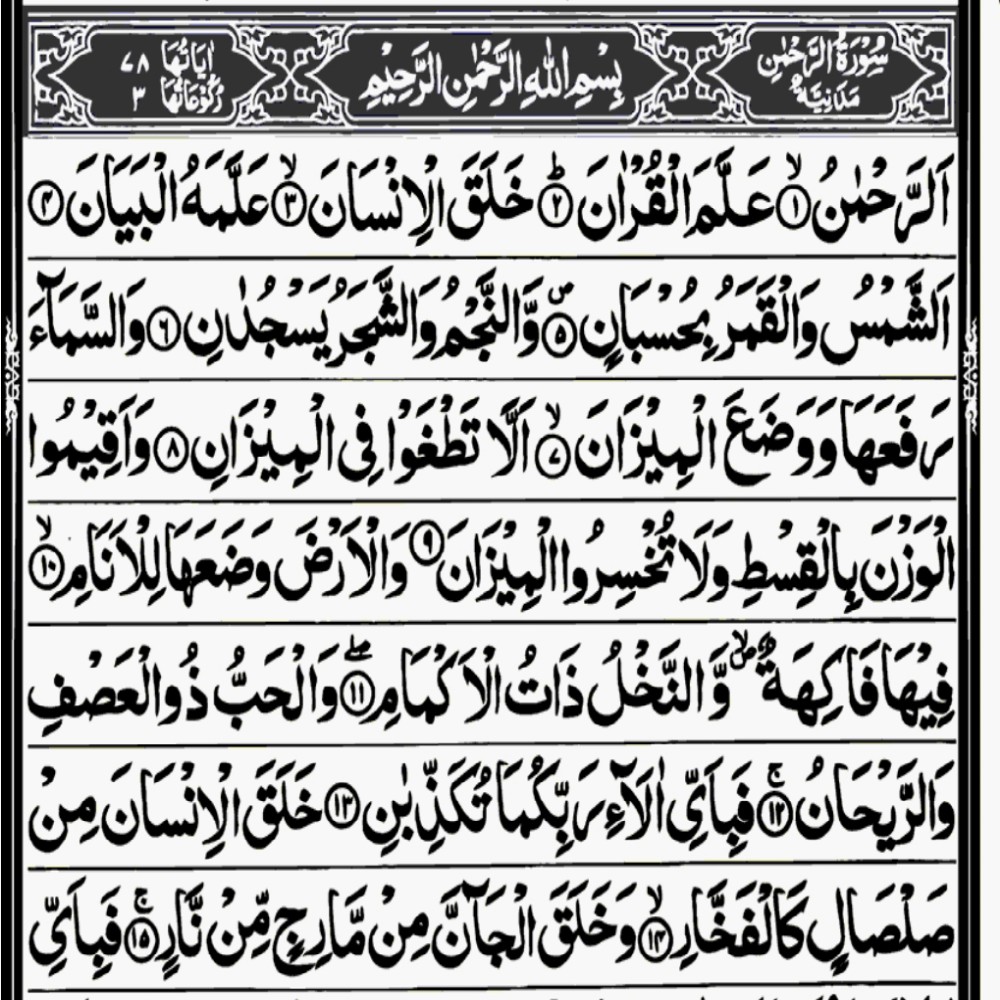 سُوْرَةُ الرَّحْمٰنِ مَدَنِيَّةٌ
بِسْمِ اللّٰهِ الرَّحْمٰنِ الرَّحِيْمِ
اٰيَاتُهَا ٧٨ رُكُوْعَاتُهَا ٣
اَلرَّحْمٰنُ ۙ﴿١﴾ عَلَّمَ الْقُرْاٰنَ ؕ﴿٢﴾ خَلَقَ الْاِنْسَانَ ۙ﴿٣﴾ عَلَّمَهُ الْبَيَانَ ﴿٤﴾
اَلشَّمْسُ وَالْقَمَرُ بِحُسْبَانٍ ۪﴿٥﴾ وَّالنَّجْمُ وَالشَّجَرُ يَسْجُدٰنِ ﴿٦﴾ وَالسَّمَآءَ
رَفَعَهَا وَوَضَعَ الْمِيْزَانَ ۙ﴿٧﴾ اَلَّا تَطْغَوْا فِى الْمِيْزَانِ ﴿٨﴾ وَاَقِيْمُوا
الْوَزْنَ بِالْقِسْطِ وَلَا تُخْسِرُوا الْمِيْزَانَ ﴿٩﴾ وَالْاَرْضَ وَضَعَهَا لِلْاَنَامِ ۙ﴿١٠﴾
فِيْهَا فَاكِهَةٌ ۪ۙ وَّالنَّخْلُ ذَاتُ الْاَكْمَامِ ۖ﴿١١﴾ وَالْحَبُّ ذُوالْعَصْفِ
وَالرَّيْحَانُ ۚ﴿١٢﴾ فَبِاَىِّ اٰلَآءِ رَبِّكُمَا تُكَذِّبٰنِ ﴿١٣﴾ خَلَقَ الْاِنْسَانَ مِنْ
صَلْصَالٍ كَالْفَخَّارِ ۙ﴿١٤﴾ وَخَلَقَ الْجَآنَّ مِنْ مَّارِجٍ مِّنْ نَّارٍ ۚ﴿١٥﴾ فَبِاَىِّ